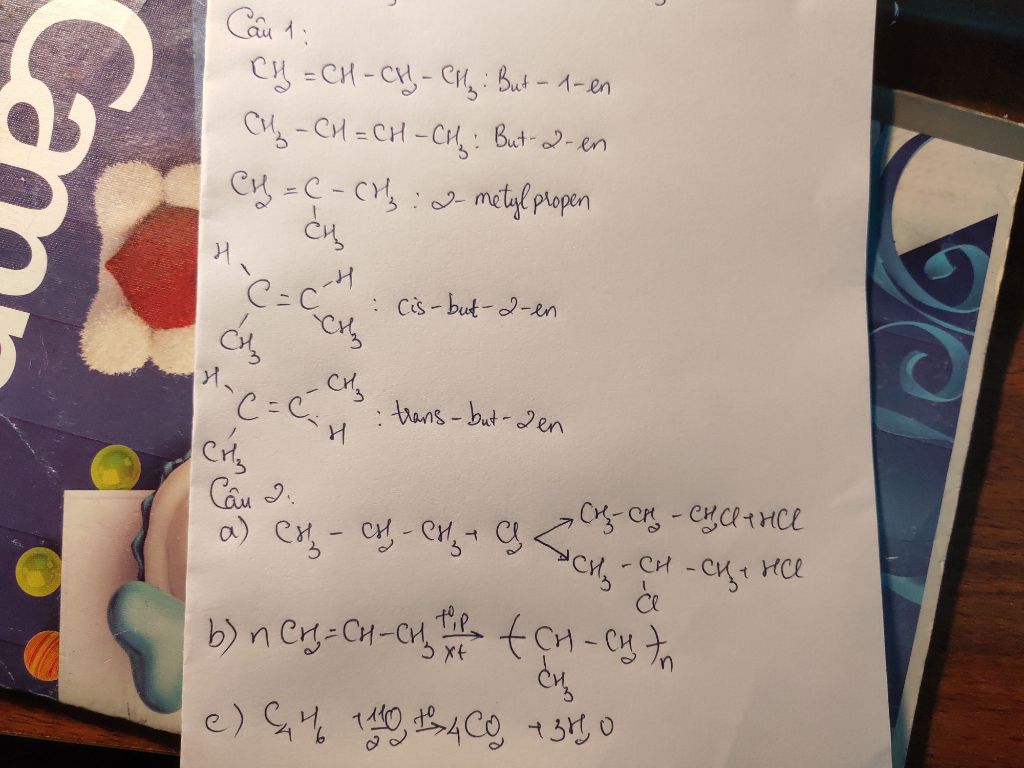 Cam
Câu 1:
CH₂ = CH - CH₂ - CH₃ : But - 1 - en
CH₃ - CH = CH - CH₃ : But - 2 - en
CH₂ = C - CH₃ : 2 - metyl propen
CH₃
H H
C = C : cis - but - 2 - en
CH₃ CH₃
H CH₃
C = C : trans - but - 2en
CH₃ H
Câu 2:
a) CH₃ - CH₂ - CH₃ + Cl₂ CH₃ - CH₂ - CH₂Cl + HCl
CH₃ - CH - CH₃ + HCl
Cl
b) n CH₂ = CH - CH₃ t°, p xt → ( CH - CH₂ )n
CH₃
c) C₄H₆ + 11/2 O₂ t° → 4CO₂ + 3H₂O